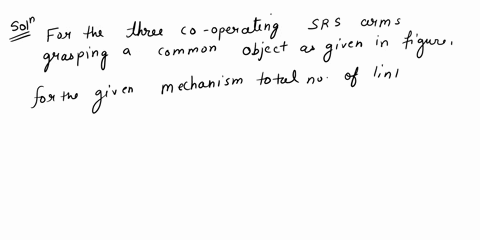 Solⁿ For the three co-operating SRS arms
grasping a common object as given in figure.
for the given mechanism total no. of